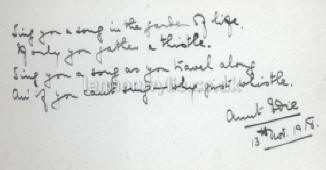 Sing you a song in the garden of life,
If only you gather a thistle.
Sing you a song as you travel along
An' if you can't sing – why just whistle.
Aunt Edie
13th Nov. 1918.